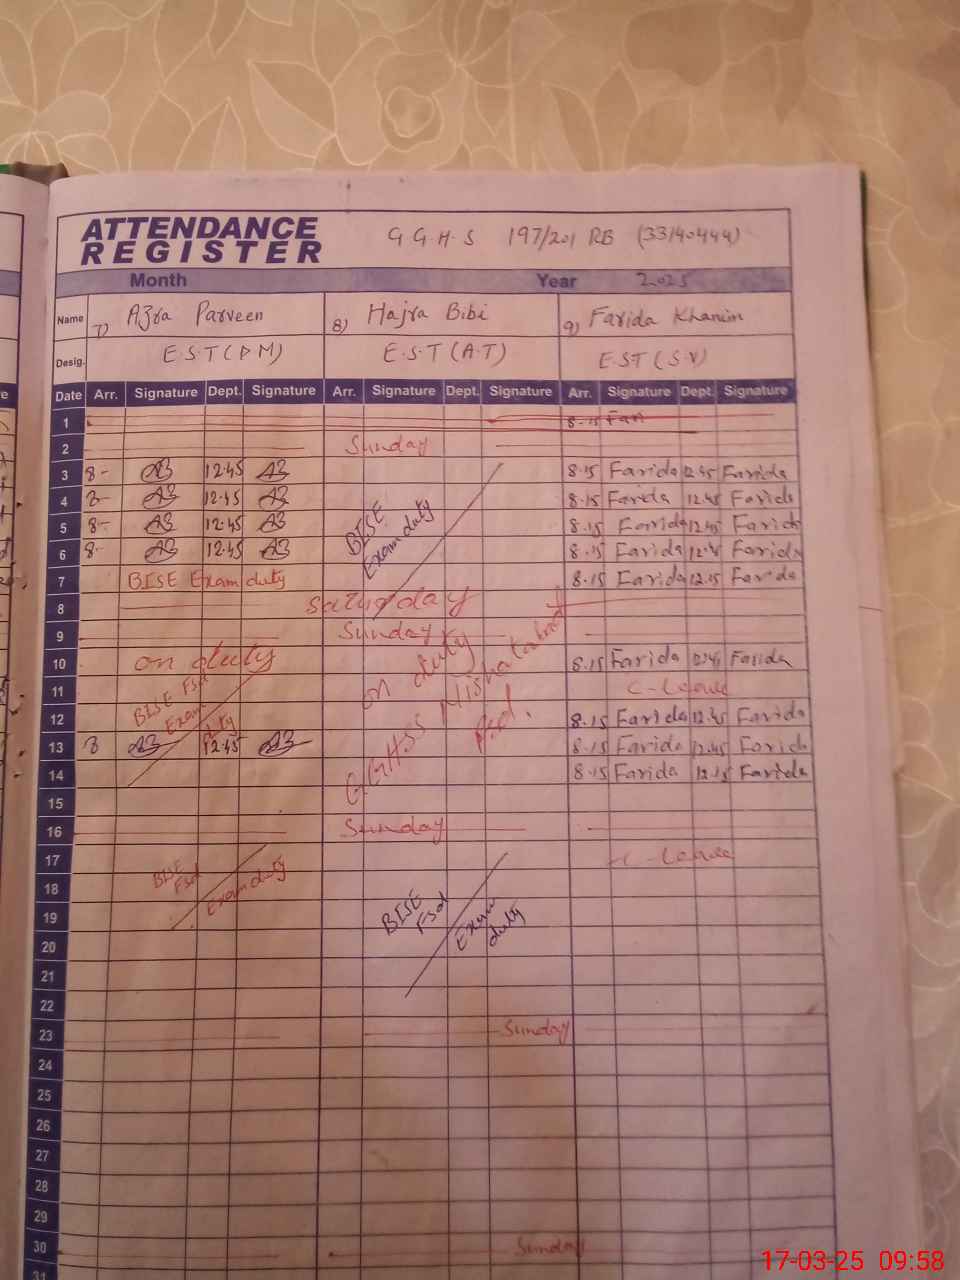 ATTENDANCE
REGISTER
G G.H.S 197/201 RB (33140444)
Month Year 2025
Name 7) Azra Parveen 8) Hajra Bibi 9) Farida Khanim
Desig. E.S.T (D.M) E.S.T (A.T) EST (S.V)
Date Arr. Signature Dept. Signature Arr. Signature Dept. Signature Arr. Signature Dept. Signature
1 8.15 Fari
2 Sunday
3 8- 12.45 8.15 Farida 12.45 Farida
4 8- 12.45 8.15 Farida 12.45 Farida
5 8- 12.45 BISE 8.15 Farida 12.45 Farida
6 8- 12.45 Exam duty 8.15 Farida Farida
7 BISE Exam duty 8.15 Farida 12.15 Farida
8 Saturday
9 Sunday
10 on duty on duty 8.15 Farida Farida
11 BISE Fsd C-Leave
12 Exam duty GGHSS Fsd. 8.15 Farida 12.45 Farida
13 8 12.45 8.15 Farida 12.45 Farida
14 8.15 Farida 12.15 Farida
15
16 Sunday
17 C-Leave
18 BISE Fsd Exam duty
19 BISE Fsd Exam duty
20
21
22
23 Sunday
24
25
26
27
28
29
30 Sunday
31
17-03-25 09:58